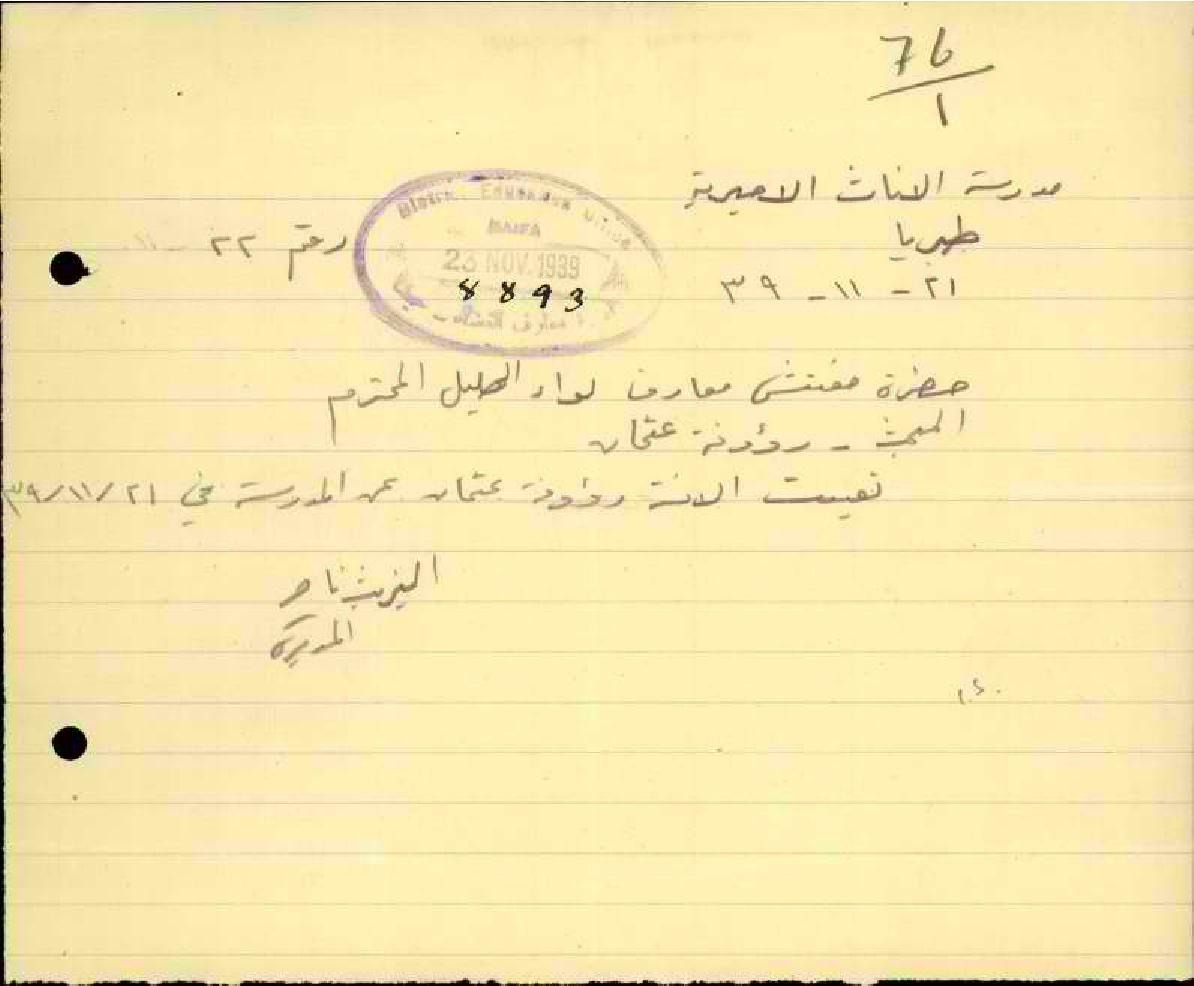 76
١
مدرسة الاناث الاميرية
طبريا
٢١ - ١١ - ٣٩
رقم ٢٢
District Education Office
HAIFA
23 NOV. 1939
8893
معارف
حضرة مفتش معارف لواء الجليل المحترم
المبحث - رؤوفة عثمان
تغيبت الانسة رؤوفة عثمان عن المدرسة في ٣٩/١١/٢١
المديرة